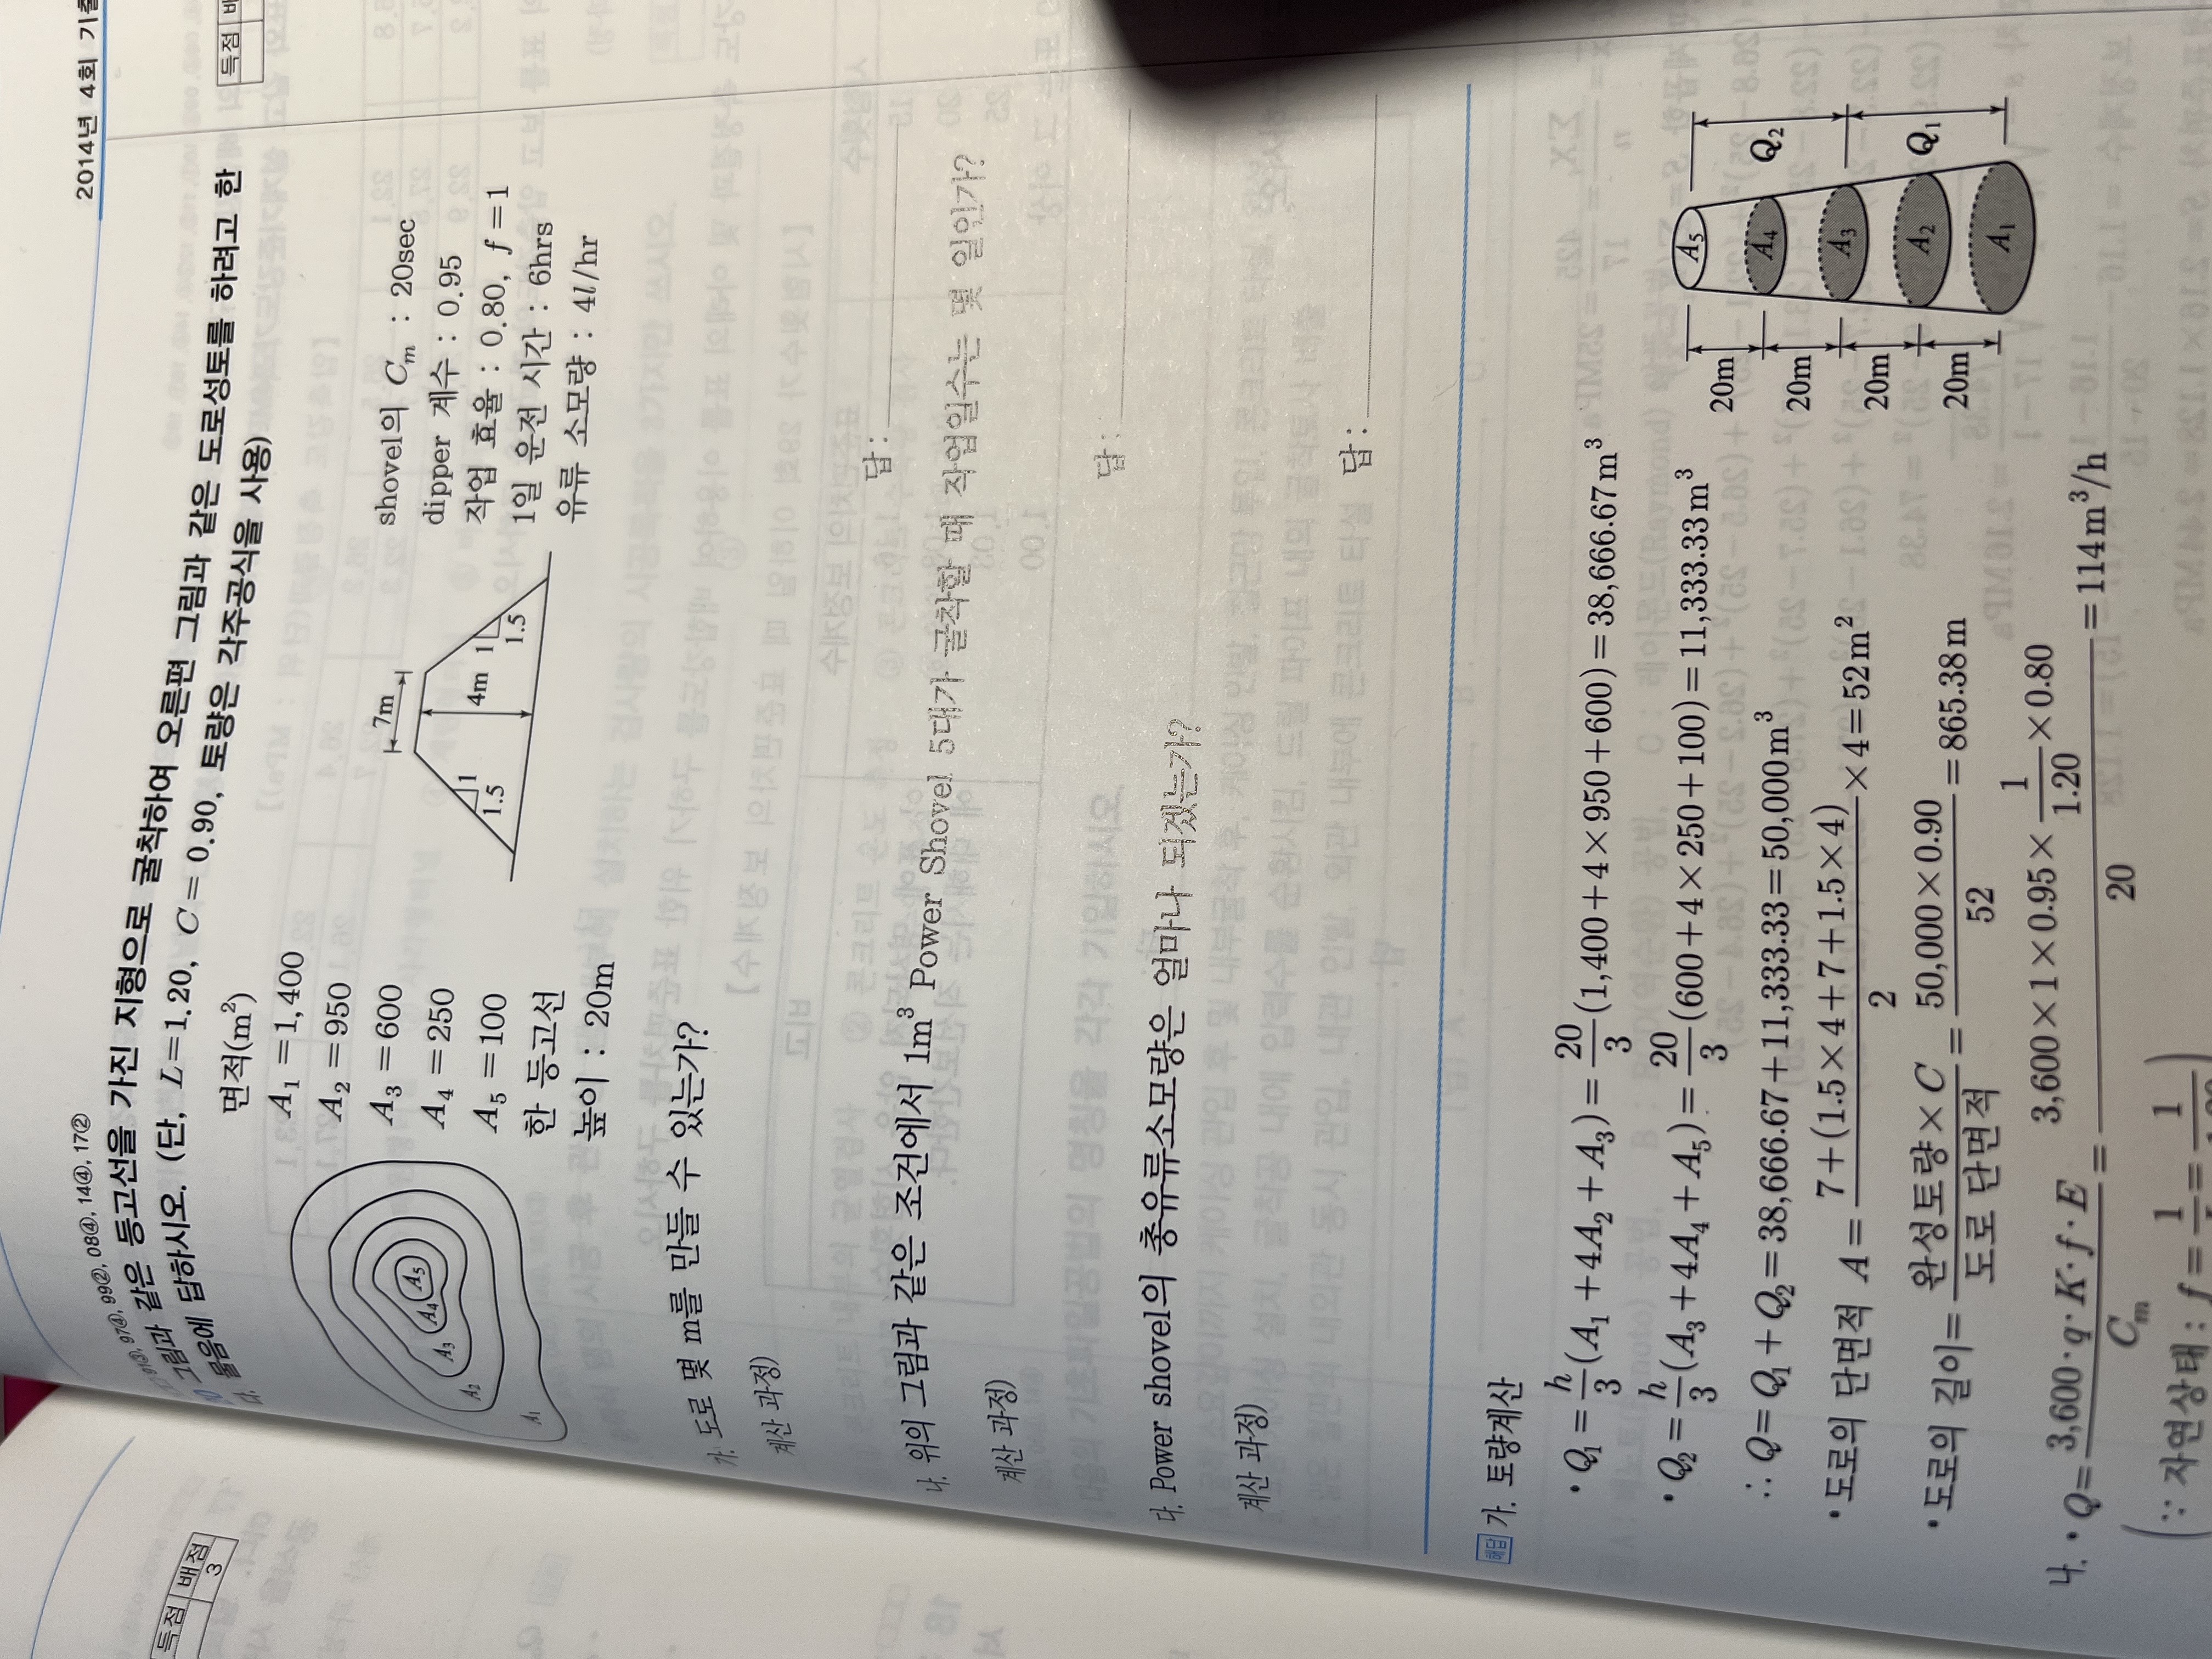 2014년 4회 기출
득점 배
97④, 99②, 08④, 14④, 17②
그림과 같은 등고선을 가진 지형으로 굴착하여 오른편 그림과 같은 도로성토를 하려고 한
다. 물음에 답하시오. (단, L=1.20, C=0.90, 토량은 각주공식을 사용)
면적(m²)
A₁=1,400
A₂=950
A₃=600
A₄=250
A₅=100
한 등고선
높이 : 20m
A₅
A₄
A₃
A₂
A₁
7m
4m
1
1.5
1
1.5
shovel의 Cₘ : 20sec
dipper 계수 : 0.95
작업 효율 : 0.80, f=1
1일 운전 시간 : 6hrs
유류 소모량 : 4l/hr
가. 도로 몇 m를 만들 수 있는가?
계산 과정)
답 :
나. 위의 그림과 같은 조건에서 1m³ Power Shovel 5대가 굴착할 때 작업일수는 몇 일인가?
계산 과정)
답 :
다. Power shovel의 총유류소모량은 얼마나 되겠는가?
계산 과정)
답 :
해답 가. 토량계산
• Q₁=h/3(A₁+4A₂+A₃)=20/3(1,400+4×950+600)=38,666.67m³
• Q₂=h/3(A₃+4A₄+A₅)=20/3(600+4×250+100)=11,333.33m³
∴ Q=Q₁+Q₂=38,666.67+11,333.33=50,000m³
• 도로의 단면적 A=7+(1.5×4+7+1.5×4)/2×4=52m²
• 도로의 길이=완성토량×C/도로 단면적=50,000×0.90/52=865.38m
나. • Q=3,600·q·K·f·E/Cₘ=3,600×1×0.95×1/1.20×0.80/20=114m³/h
(∵ 자연상태 : f=1/
20m
20m
20m
20m
A₅
A₄
A₃
A₂
A₁
Q₂
Q₁
득점 배점
3